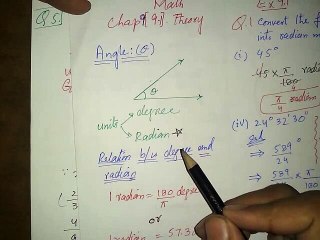 Q.5
Math
Chap# 9.1 Theory
Angle: (θ)
θ
units
degree
Radian
Relation b/w degree and
radian
1 radian = 180/π degree
or
1 radian = 57.3
Ex 9.1
Q.1 Convert the f
into radian m
(i) 45°
45 π/180
π/4 radian
(iv) 24° 32' 30"
Sol
⇒ 589°/24
⇒ 589/24 × π/180